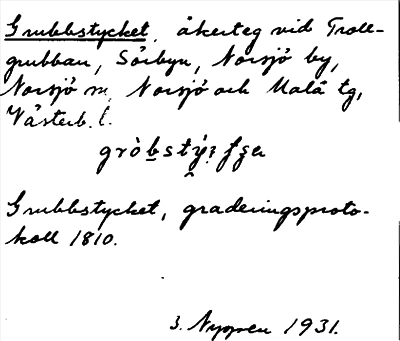 Grubbstycket, åkerteg vid Troll-
grubban, Sörbyn, Norsjö by,
Norsjö sn, Norsjö och Malå tg,
Västerb. l.
Grubbstycket, graderingsproto-
koll 1810.
3. Nyppen 1931.